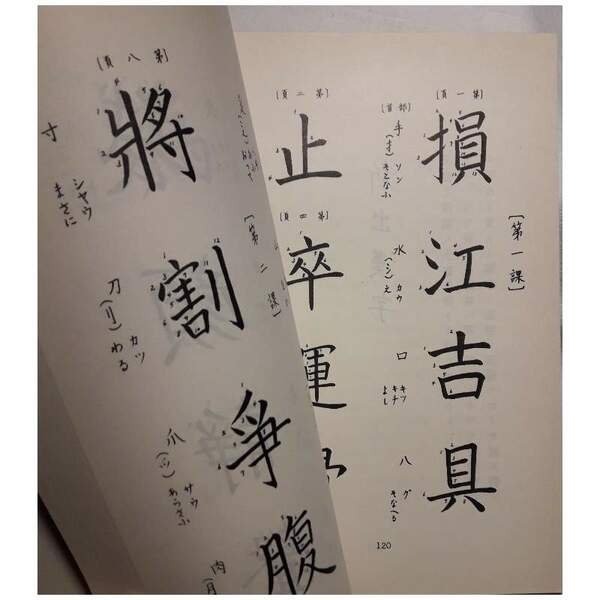 [第一課]
[第一頁]
損 江 吉 具
[部首]
手(扌) ソン そこなふ
水(シ) カウ え
口 キツ キチ よし
八 グ そなへる
[第二頁]
止
[第四頁]
卒 運
120
[第二課]
[第八頁]
將 割 爭 腹
寸 シヤウ まさに
刀(刂) カツ わる
爪(爫) サウ あらそふ
肉(月